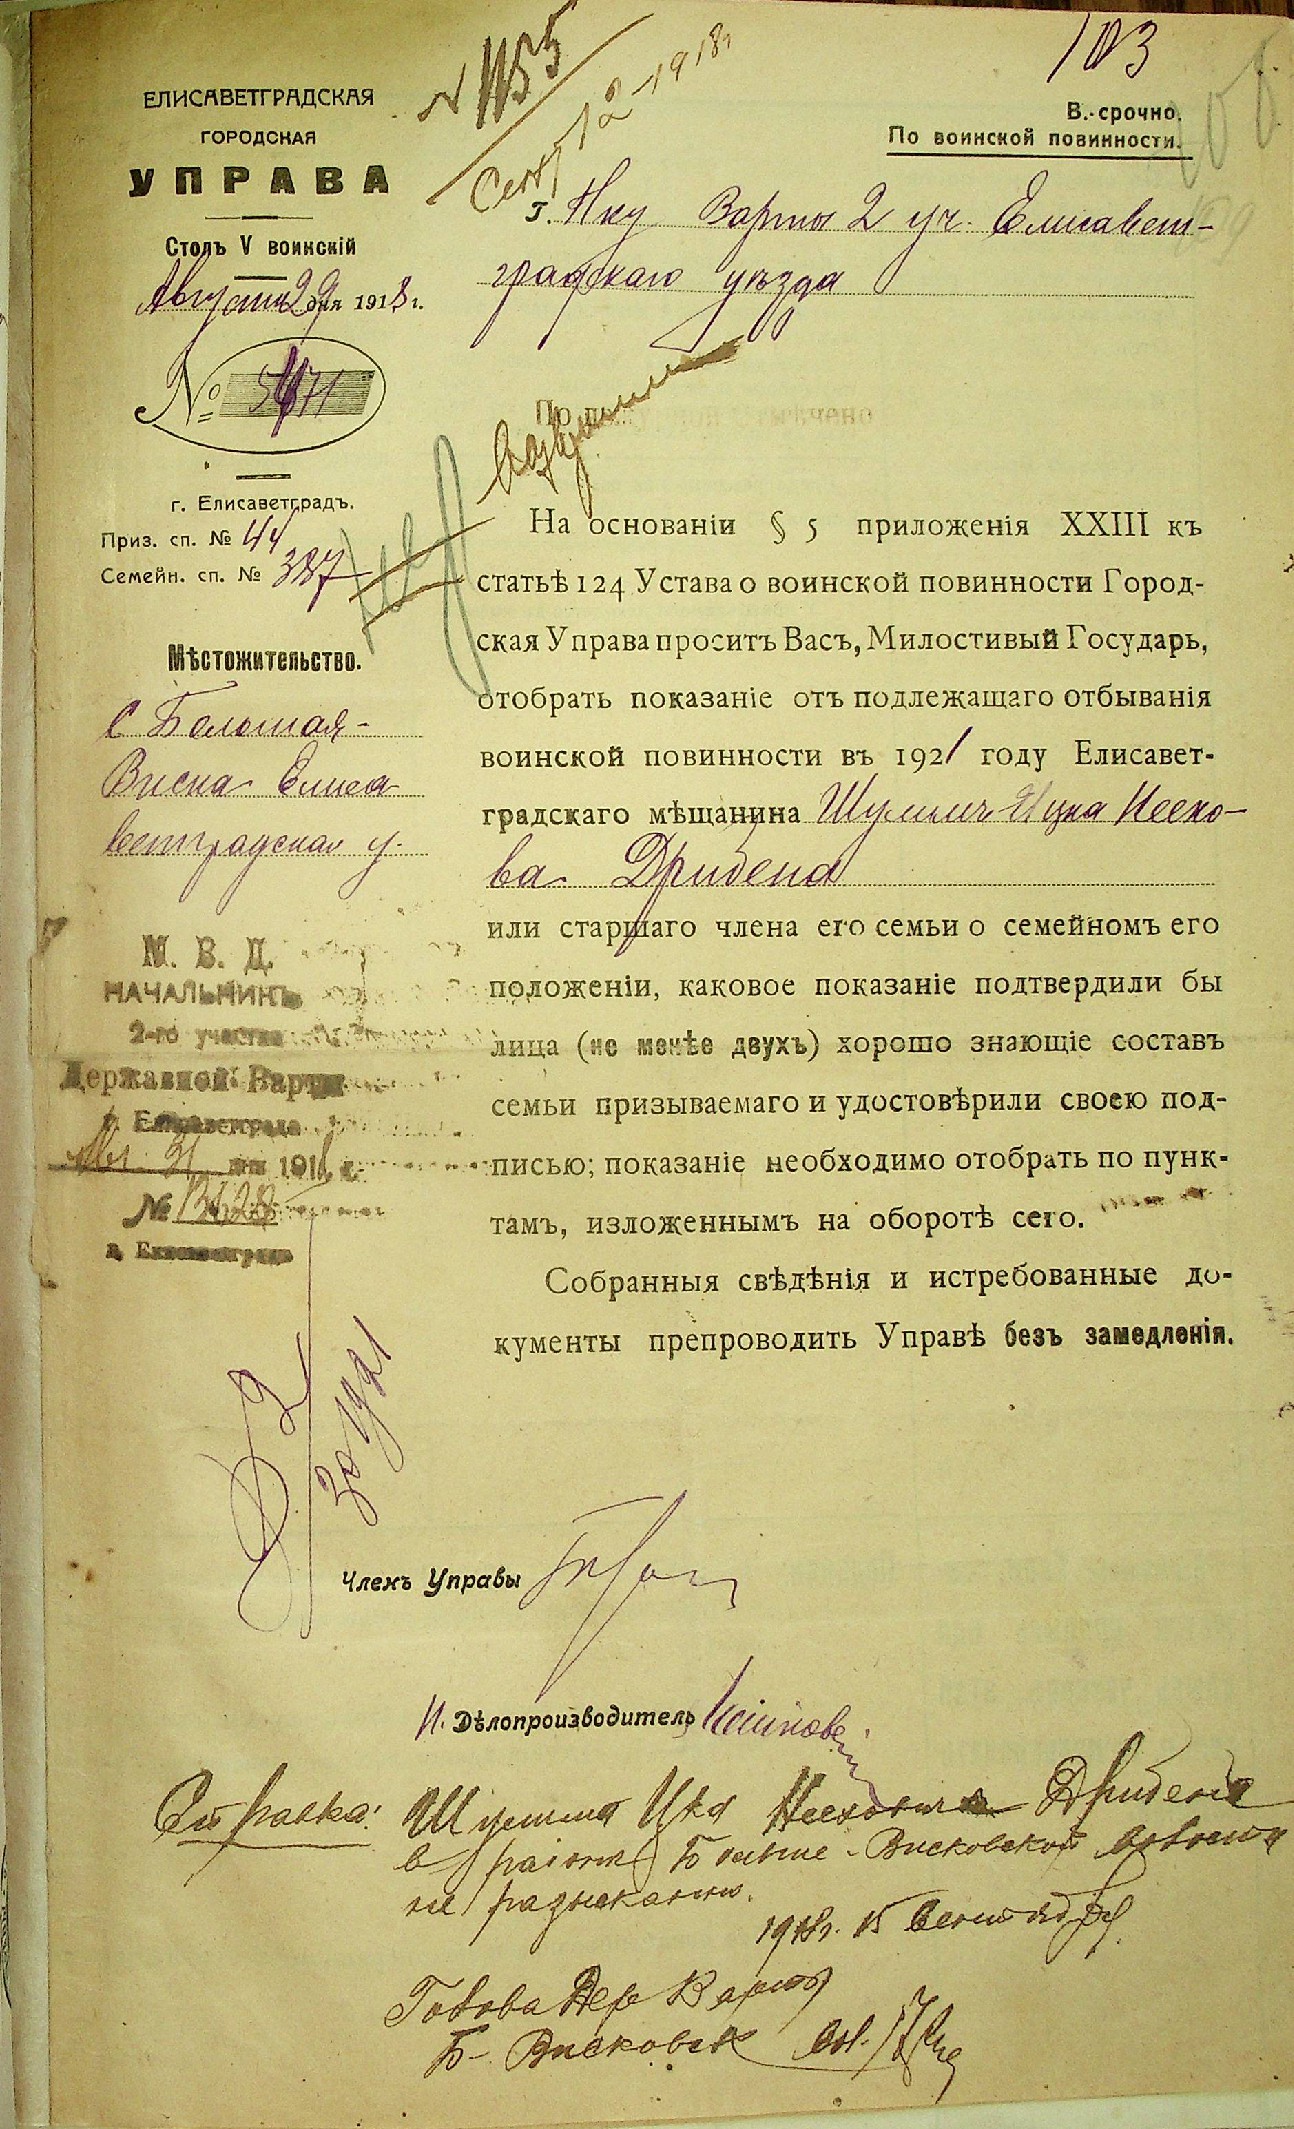 103
№ 1155
Сент 12 1918 г
В.-срочно.
По воинской повинности.
ЕЛИСАВЕТГРАДСКАЯ
ГОРОДСКАЯ
УПРАВА
Столъ V воинскій
Августа 29 дня 1918 г.
№
г. Елисаветградъ.
Приз. сп. № 44
Семейн. сп. № 387
Мѣстожительство.
с Большая-
Виска Елиса
ветградскаго у.
М. В. Д.
НАЧАЛЬНИКЪ
2-го участка
Державной Варты
г. Елисаветграда
31 дня 1918 г.
№
г. Елисаветградъ
Г. Нку Варты 2 уч. Елисавет-
градскаго уѣзда
На основаніи § 5 приложенія XXIII къ
статьѣ 124 Устава о воинской повинности Город-
ская Управа проситъ Васъ, Милостивый Государь,
отобрать показаніе отъ подлежащаго отбыванія
воинской повинности въ 1921 году Елисавет-
градскаго мѣщанина Шулима Ицка Несхо-
ва Дридена
или старшаго члена его семьи о семейномъ его
положеніи, каковое показаніе подтвердили бы
лица (не менѣе двухъ) хорошо знающіе составъ
семьи призываемаго и удостовѣрили своею под-
писью; показаніе необходимо отобрать по пунк-
тамъ, изложеннымъ на оборотѣ сего.
Собранныя свѣдѣнія и истребованные до-
кументы препроводить Управѣ безъ замедленія.
Членъ Управы
И. Дѣлопроизводитель
Справка: Шулима Ицка Несховича Дридена
в районе Больше-Висковской волости
не разыскано.
1918 г. 15 Сентября
Голова Дер Варты
Б-Висковск вол.